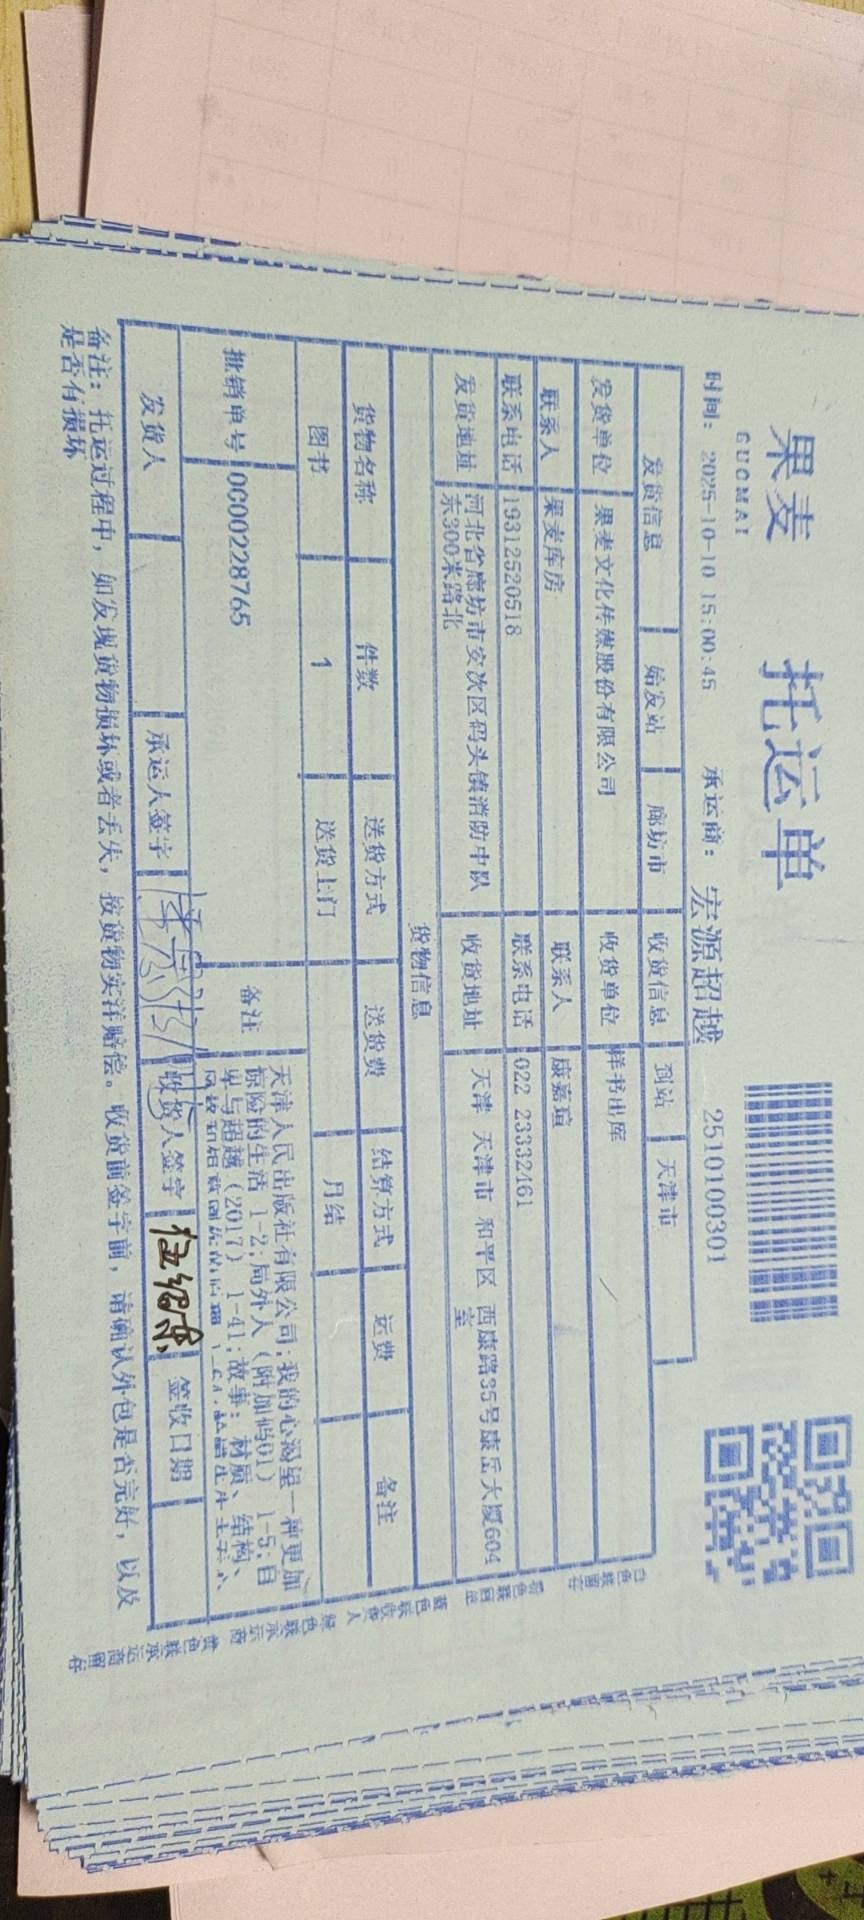 果麦
GUOMAI
托运单
时间: 2025-10-10 15:00:45 承运商: 宏源超越 2510100301
发货信息 始发站 廊坊市 收货信息 到站 天津市
发货单位 果麦文化传媒股份有限公司 收货单位 样书出库
联系人 果麦库房 联系人 康嘉瑄
联系电话 19312520518 联系电话 022 23332461
发货地址 河北省廊坊市安次区码头镇消防中队东300米路北 收货地址 天津 天津市 和平区 西康路35号康丘大厦604室
货物信息
货物名称 件数 送货方式 送货费 结算方式 运费 备注
图书 1 送货上门 月结
批销单号 0000228765 备注
天津人民出版社有限公司;我的心渴望一种更加
惊险的生活 1-2;局外人(附加码01) 1-5;自
卑与超越(2017) 1-41;故事:材质、结构、
发货人 承运人签字 收货人签字 签收日期
备注: 托运过程中, 如发现货物损坏或者丢失, 按货物实洋赔偿。收货前签字前, 请确认外包是否完好, 以及
是否有损坏